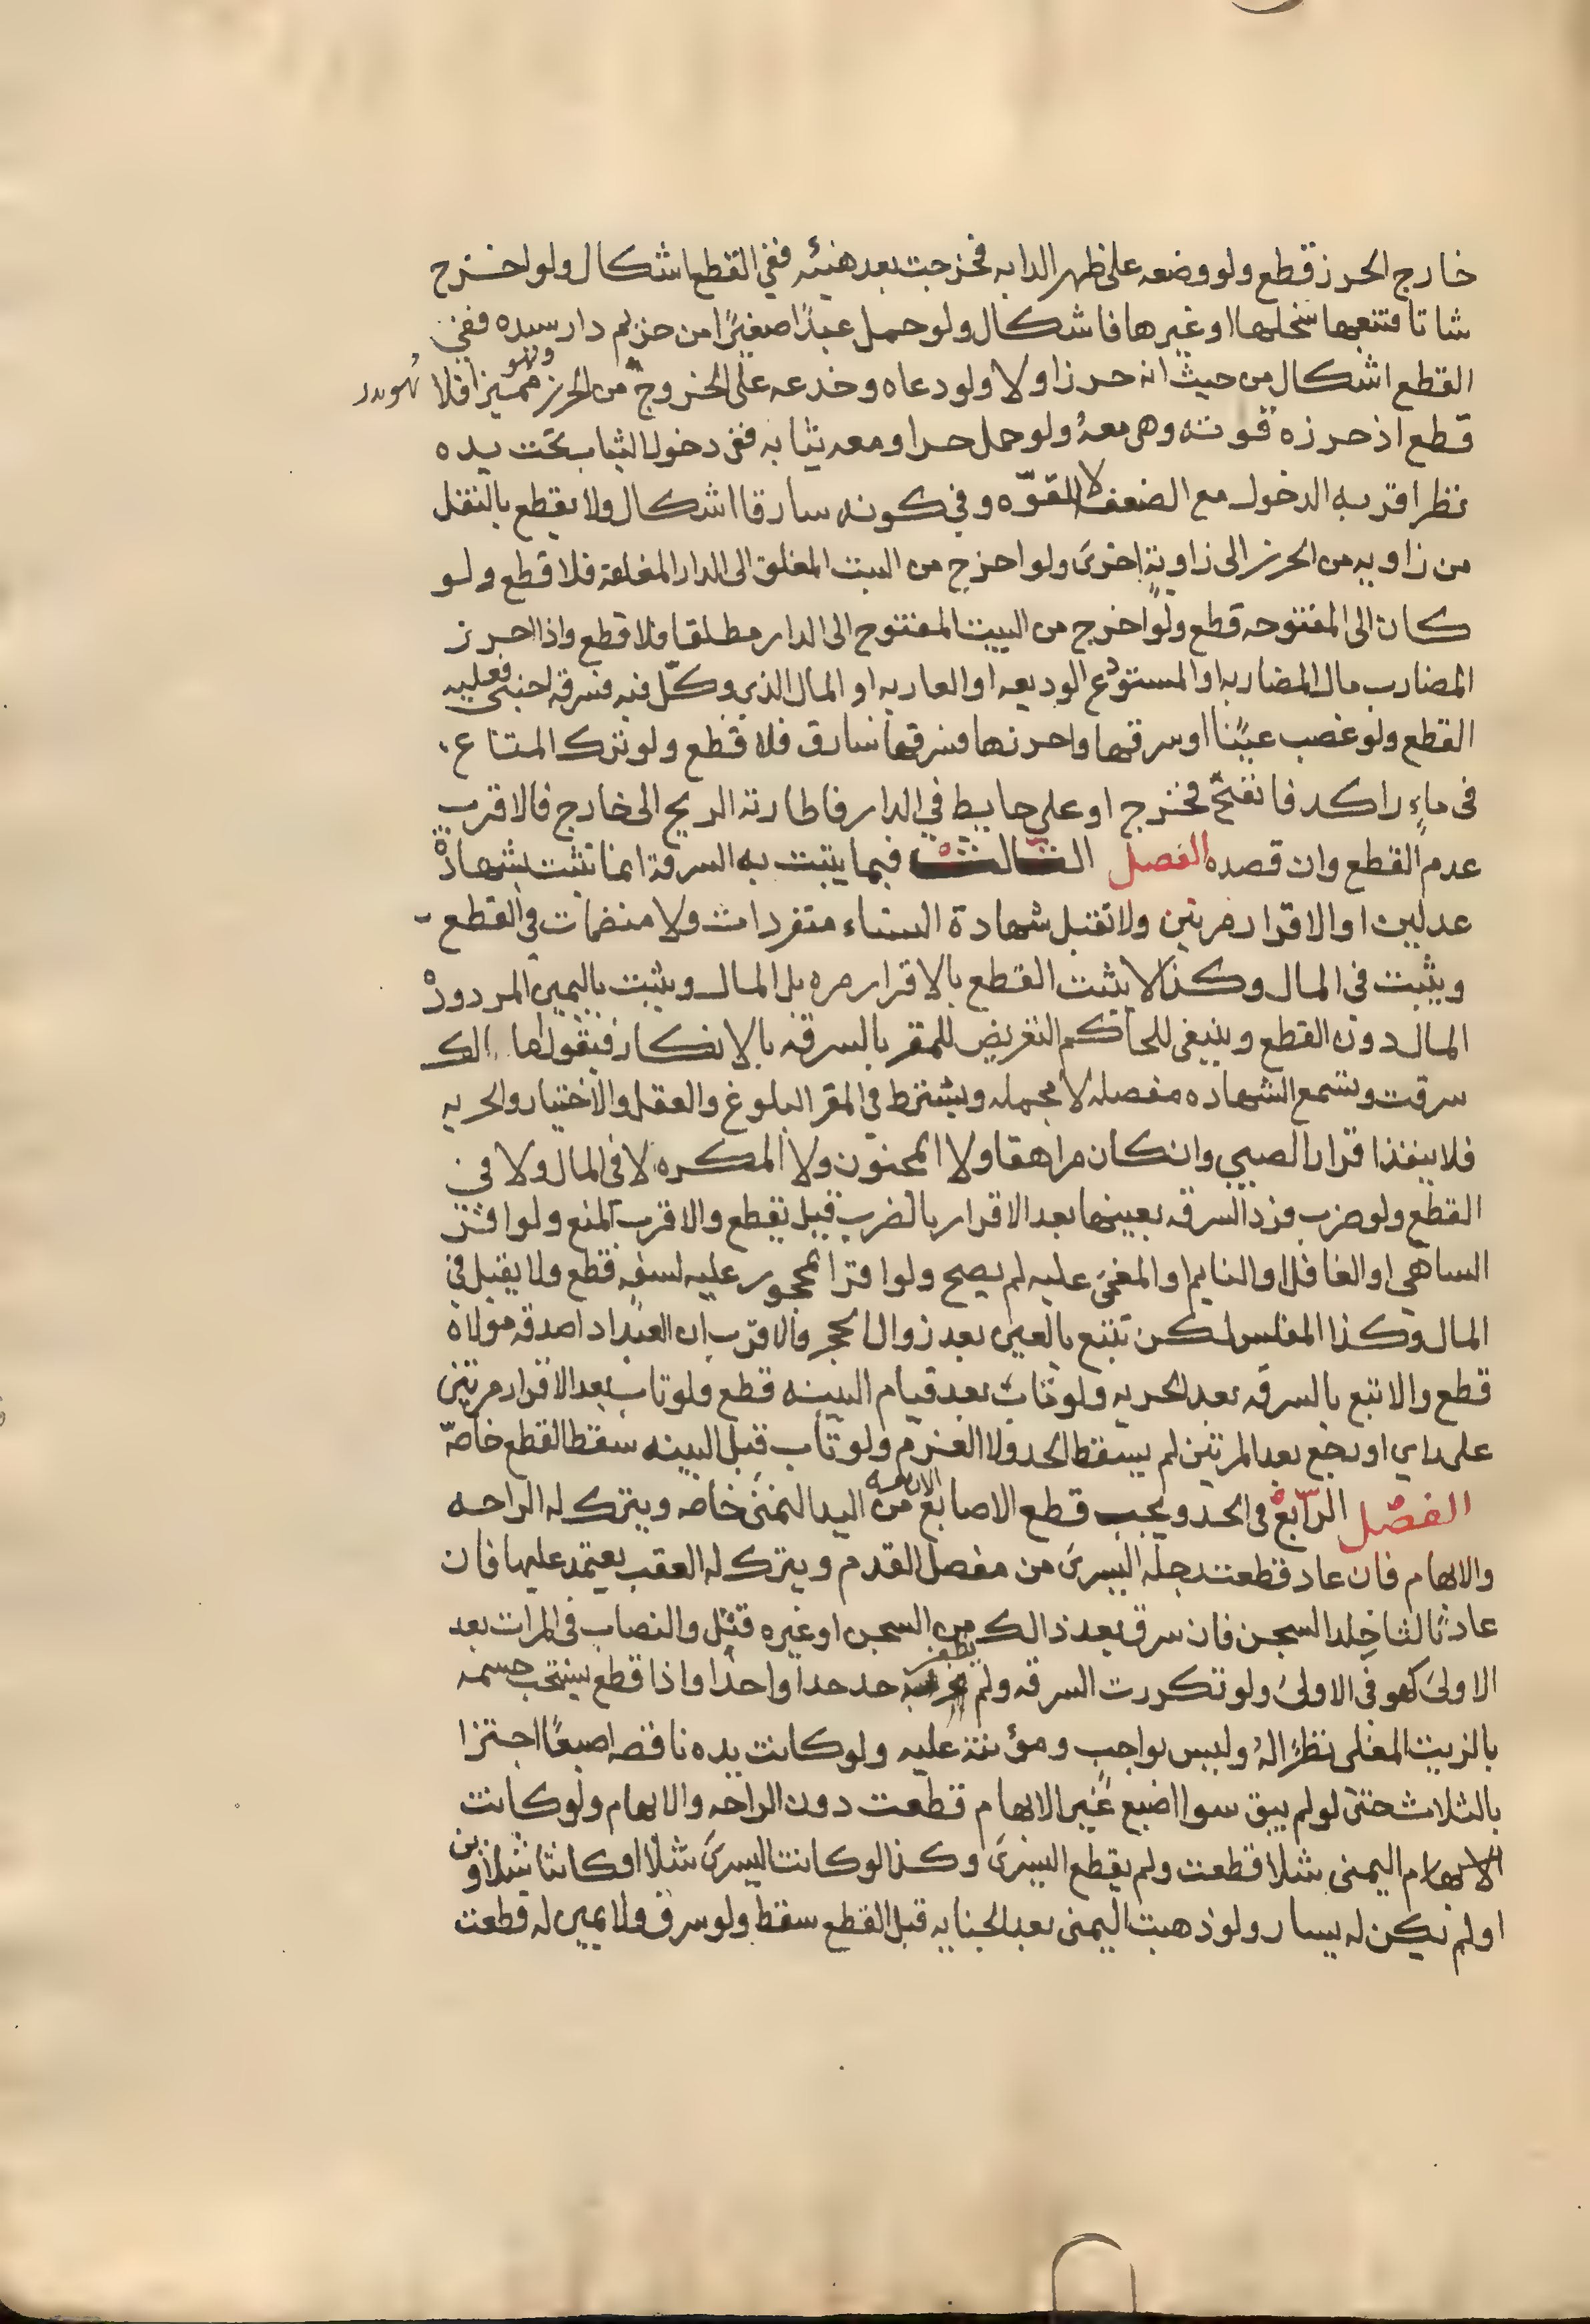 خارج الحرز قطع ولو وضعه على ظهر الدابه فخرجت بعد هنيئه ففي القطع اشكال ولو اخرج
شاتا فتتبعها سخلها او غيرها فاشكال ولو حمل عبدًا صغيرًا من حريم دار سيده ففي
القطع اشكال من حيث انه حرز اولا ولو دعاه وخدعه على الخروج من الحرز وهو مميزا فلا
قطع اذ حرزه قوته وهى معهُ ولو حمل حرا ومعه ثيابه ففى دخول الثياب تحت يده
نظر اقربه الدخول مع الضعف لا القوّه وفي كونه سارقا اشكال ولا يقطع بالنقل
من زاويه من الحرز الى زاويةٍ اخرىَ ولو اخرج من البيت المغلق الى الدار المغلقة فلا قطع ولو
كان الى المفتوحه قطع ولو اخرج من البيت المفتوح الى الدار مطلقا فلا قطع واذا احرز
المضارب مال المضاربه او المستودع الوديعه او العاريه او المال الذى وكّل فيه فسرقه اجنبى فعليه
القطع ولو غصب عينًا او سرقها واحرزها فسرقها سارق فلا قطع ولو ترك المتاع
فى ماءٍ راكد فانفتح فخرج او على حايط في الدار فاطارته الريح الى خارج فالاقرب
عدم القطع وان قصده الفصل الثالث فيما يثبت به السرقة انما تثبت بشهادة
عدلين او الاقرار مرتين ولا تقبل شهادة النساء منفردات ولا منضمات في القطع
ويثبت فى المال وكذا لا يثبت القطع بالاقرار مره بل المال ويثبت باليمين المردودة
المال دون القطع وينبغى للحاكم التعريض للمقر بالسرقه بالانكار فيقول ما اخالك
سرقت وتسمع الشهاده مفصله لا مجمله ويشترط في المقر البلوغ والعقل والاختيار والحريه
فلا ينفذ اقرار الصبي وان كان مراهقا ولا المجنون ولا المكره لا فى المال ولا في
القطع ولو ضرب فرد السرقه بعينها بعد الاقرار بالضرب قيل يقطع والاقرب المنع ولو اقر
الساهي او الغافل او النايم او المغمىَ عليه لم يصح ولو اقر المحجور عليه لسفه قطع ولا يقبل في
المال وكذا المفلس لكن تتبع بالعين بعد زوال الحجر والاقرب ان العبد اذا صدقه مولاه
قطع والا تبع بالسرقه بعد الحريه ولو تاب بعد قيام البينه قطع ولو تاب بعد الاقرار مرتين
على راي او رجع بعد المرتين لم يسقط الحد ولا الغرم ولو تاب قبل البينه سقط القطع خاصّه
الفصل الرابع فى الحد ويجب قطع الاصابع الاربعه من اليد اليمنى خاصه ويترك له الراحه
والابهام فان عاد قطعت رجله اليسرىَ من مفصل القدم ويترك له العقب يعتمد عليها فان
عاد ثالثا خلد السجن فان سرق بعد ذالك من السجن او غيره قتل والنصاب فى المرات بعد
الاولىَ كهو فى الاولىُ ولو تكررت السرقه ولم يظفر به حد حدا واحدًا واذا قطع يستحب حسمه
بالزيت المغلى نظرًا لهُ وليس بواجب ومؤنته عليه ولو كانت يده ناقصه اصبعًا اجتزا
بالثلاث حتى لو لم يبق سوا اصبع غير الابهام قطعت دون الراحه والابهام ولو كانت
الابهام اليمنى شلا قطعت ولم يقطع اليسرىَ وكذا لو كانت اليسرىَ شلا او كانتا شلاوين
او لم يكن له يسار ولو ذهبت اليمنى بعد الجنايه قبل القطع سقط ولو سرق ولا يمين له قطعت